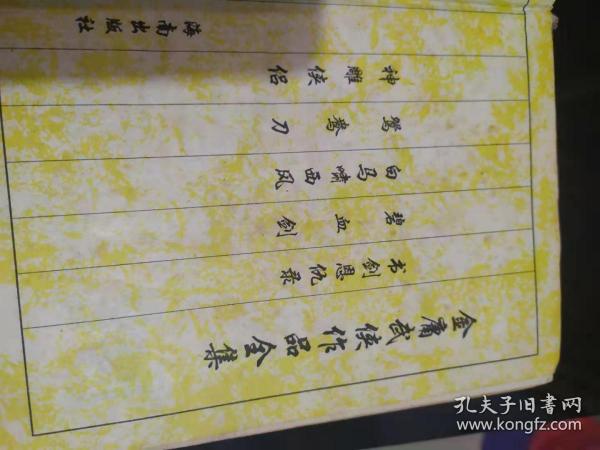 金庸武侠作品全集
书剑恩仇录
碧血剑
白马啸西风
鸳鸯刀
神雕侠侣
海南出版社
孔夫子旧书网
www.kongfz.com